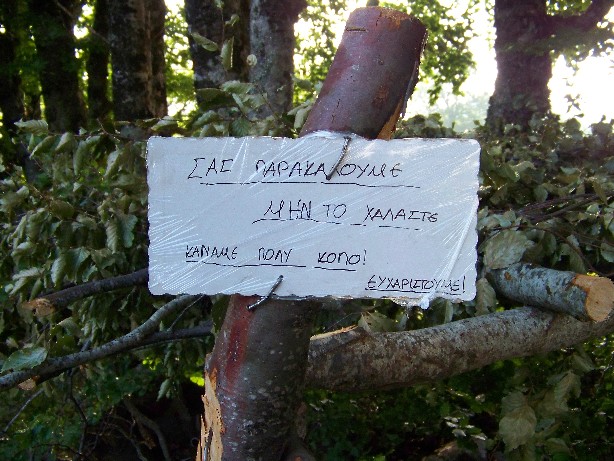 ΣΑΣ ΠΑΡΑΚΑΛΟΥΜΕ
ΜΗΝ ΤΟ ΧΑΛΑΣΤΕ
ΚΑΝΑΜΕ ΠΟΛΥ ΚΟΠΟ!
ΕΥΧΑΡΙΣΤΟΥΜΕ!